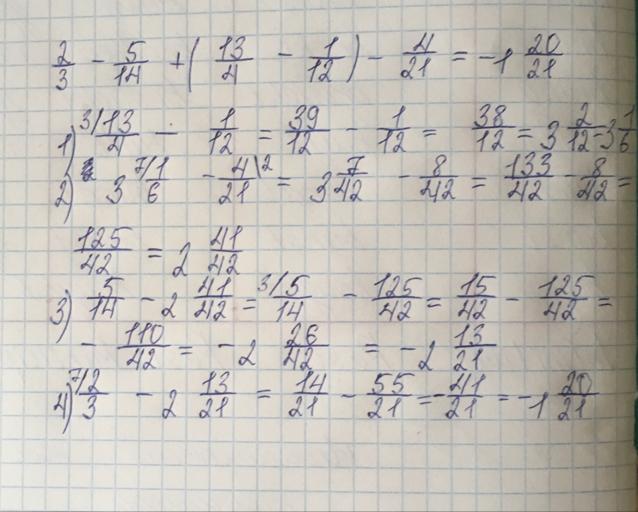 2/3 - 5/14 + (13/4 - 1/12) - 4/21 = -1 20/21
1) 3/13/4 - 1/12 = 39/12 - 1/12 = 38/12 = 3 2/12 = 3 1/6
2) 3 7/1/6 - 4\2/21 = 3 7/42 - 8/42 = 133/42 - 8/42 =
125/42 = 2 41/42
3) 5/14 - 2 41/42 = 3/5/14 - 125/42 = 15/42 - 125/42 =
- 110/42 = -2 26/42 = -2 13/21
4) 7/2/3 - 2 13/21 = 14/21 - 55/21 = -41/21 = -1 20/21